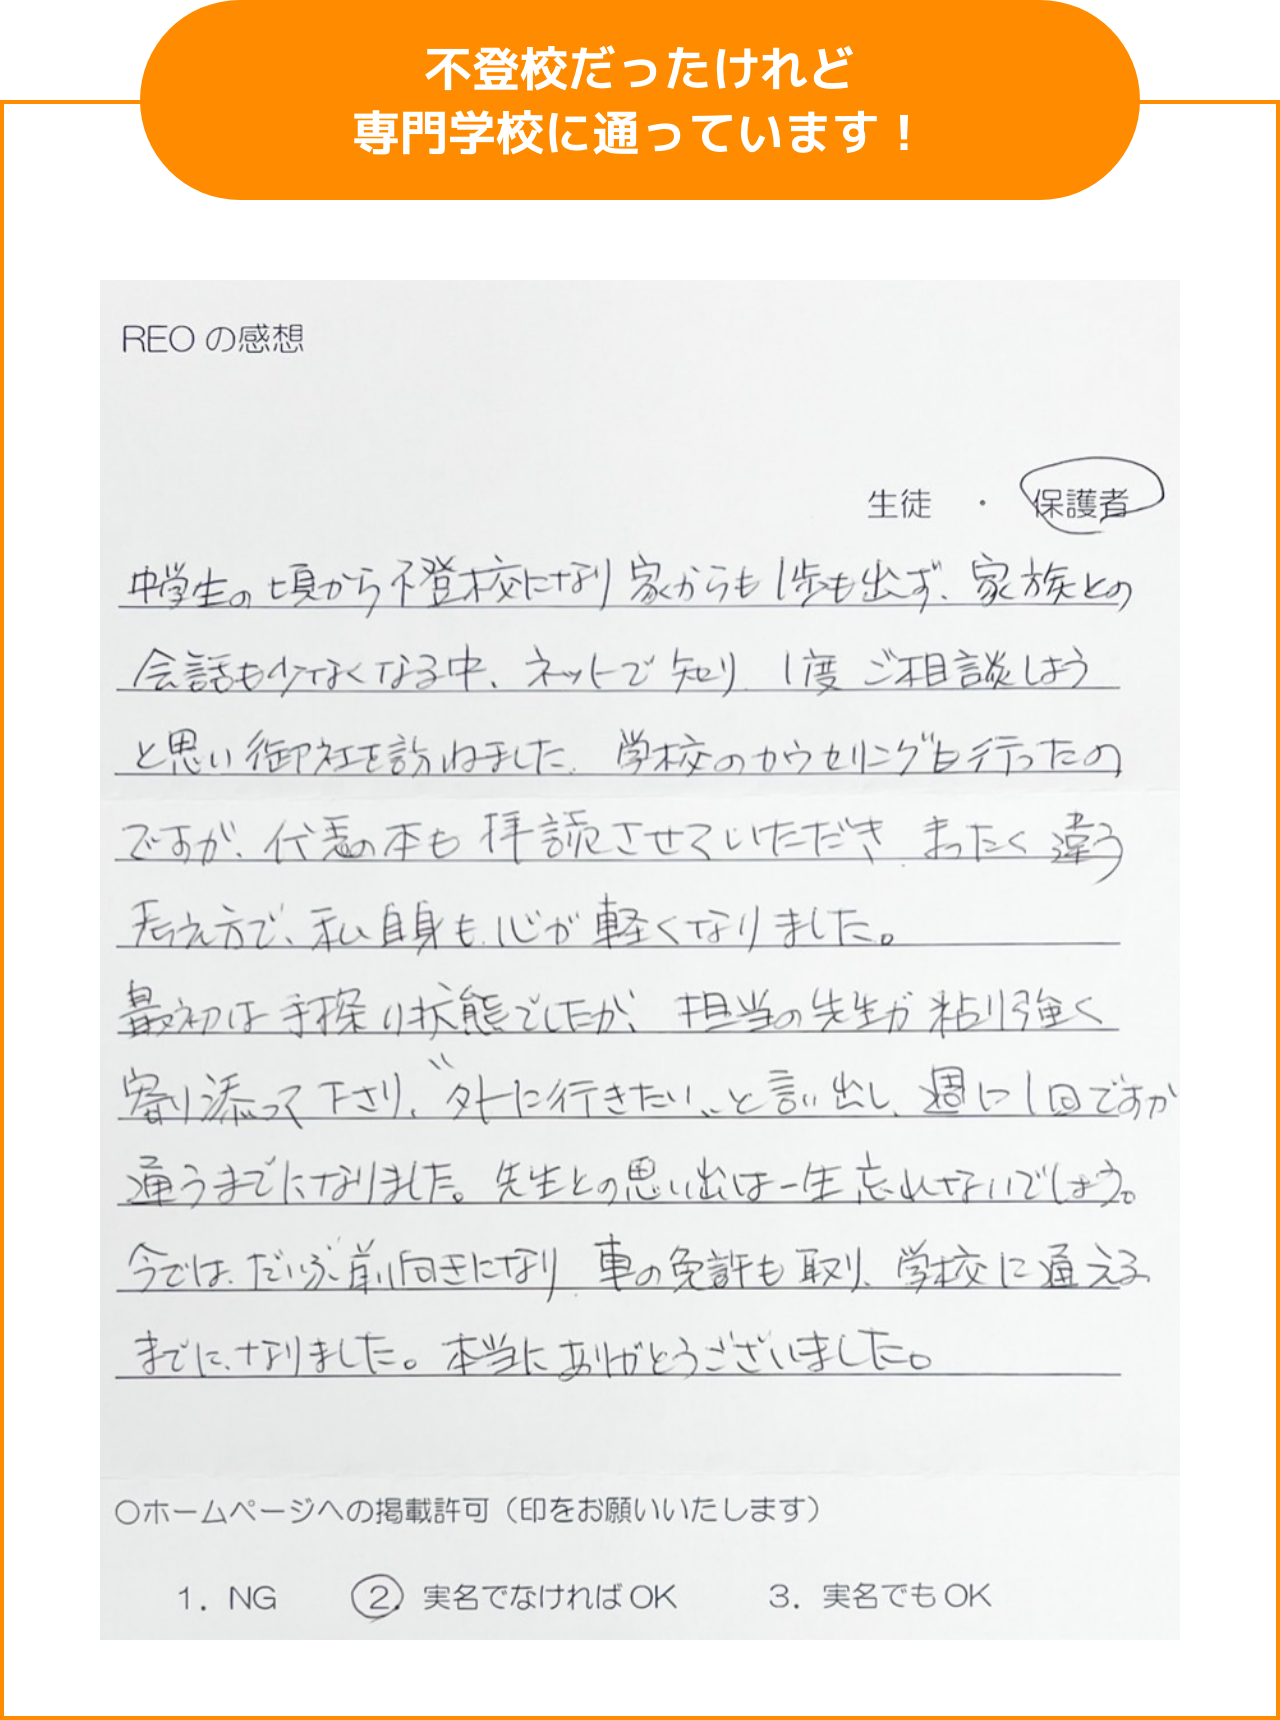 不登校だったけれど
専門学校に通っています！
REOの感想
生徒 ・ 保護者
中学生の頃から不登校になり家からも1歩も出ず、家族との
会話も少なくなる中、ネットで知り、1度ご相談しよう
と思い御社を訪ねました。学校のカウセリングも行ったの
ですが、代表の本も拝読させていただき、まったく違う
考え方で、私自身も、心が軽くなりました。
最初は手探り状態でしたが、担当の先生が粘り強く
寄り添って下さり、“外に行きたい„と言い出し、週に1回ですが
通うまでになりました。先生との思い出は一生忘れないでしょう。
今では、だいぶ前向きになり、車の免許も取り、学校に通える
までに、なりました。本当にありがとうございました。
○ホームページへの掲載許可（印をお願いいたします）
1．NG 2．実名でなければOK 3．実名でもOK